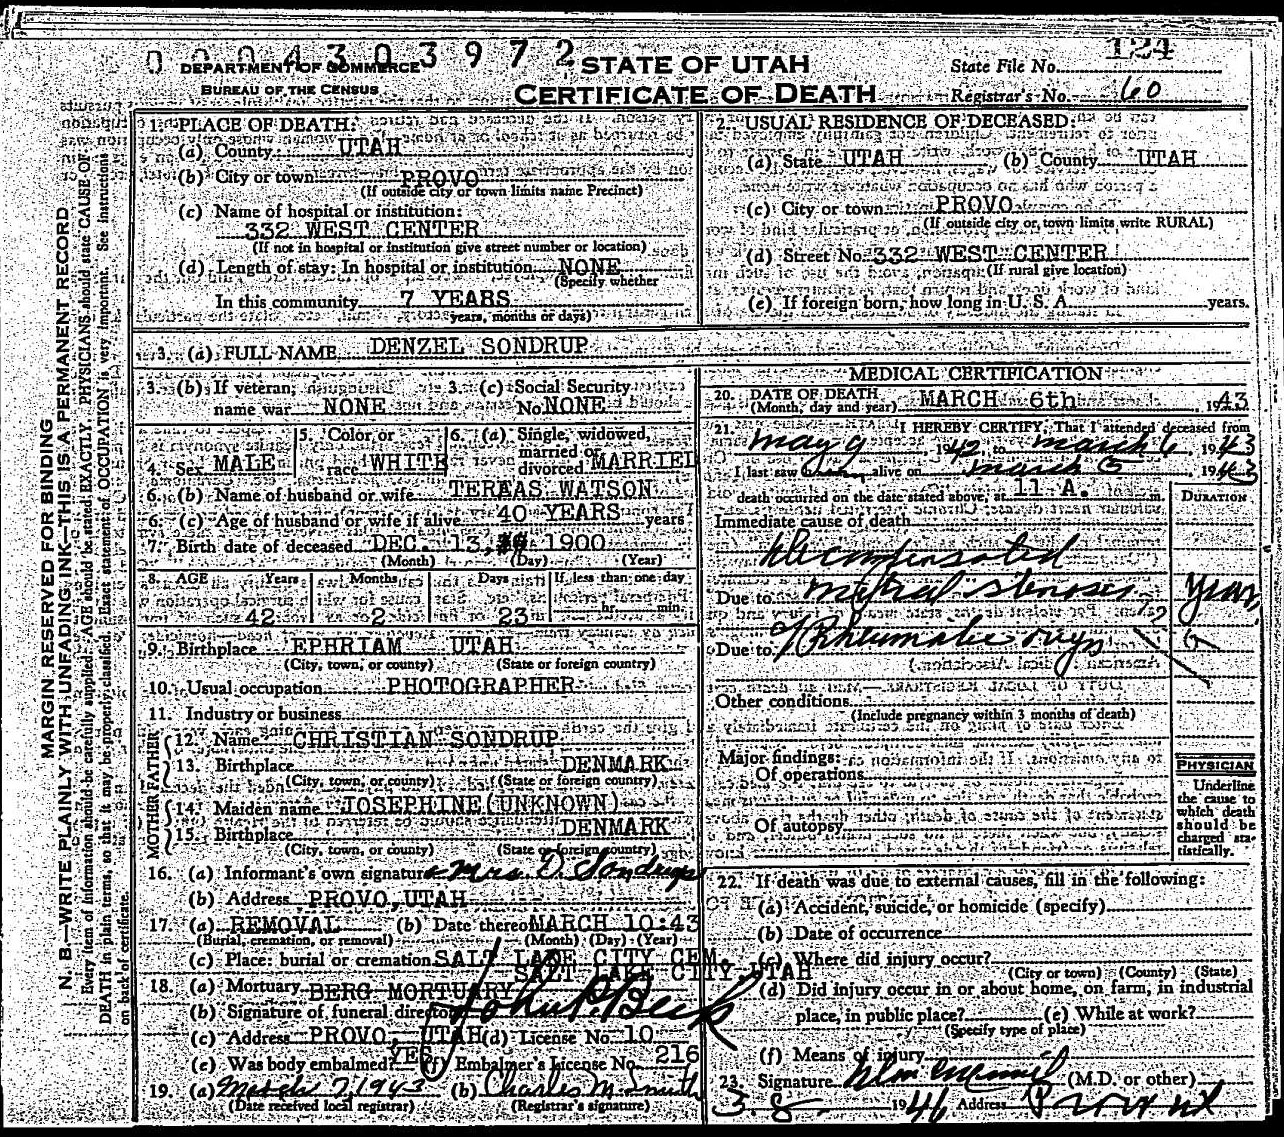 0 0 0 4 3 0 3 9 7 2
DEPARTMENT OF COMMERCE
BUREAU OF THE CENSUS
STATE OF UTAH
CERTIFICATE OF DEATH
State File No. 124
Registrar's No. 60
MARGIN RESERVED FOR BINDING
N. B.—WRITE PLAINLY WITH UNFADING INK—THIS IS A PERMANENT RECORD
Every item of information should be carefully supplied. AGE should be stated EXACTLY. PHYSICIANS should state CAUSE OF
DEATH in plain terms, so that it may be properly classified. Exact statement of OCCUPATION is very important. See instructions
on back of certificate.
1. PLACE OF DEATH:
(a) County UTAH
(b) City or town PROVO
(If outside city or town limits name Precinct)
(c) Name of hospital or institution:
332 WEST CENTER
(If not in hospital or institution give street number or location)
(d) Length of stay: In hospital or institution NONE
(Specify whether
In this community 7 YEARS
years, months or days)
2. USUAL RESIDENCE OF DECEASED:
(a) State UTAH (b) County UTAH
(c) City or town PROVO
(If outside city or town limits write RURAL)
(d) Street No. 332 WEST CENTER
(If rural give location)
(e) If foreign born, how long in U. S. A. years.
3. (a) FULL NAME DENZEL SONDRUP
3. (b) If veteran, name war NONE
3. (c) Social Security No. NONE
4. Sex MALE
5. Color or race WHITE
6. (a) Single, widowed, married or divorced MARRIED
6. (b) Name of husband or wife TEREAS WATSON
6. (c) Age of husband or wife if alive 40 YEARS years
7. Birth date of deceased DEC. 13, 1900
(Month) (Day) (Year)
8. AGE Years Months Days If less than one day
42 2 23 hr. min.
9. Birthplace EPHRIAM UTAH
(City, town, or county) (State or foreign country)
10. Usual occupation PHOTOGRAPHER
11. Industry or business
FATHER
12. Name CHRISTIAN SONDRUP
13. Birthplace DENMARK
(City, town, or county) (State or foreign country)
MOTHER
14. Maiden name JOSEPHINE (UNKNOWN)
15. Birthplace DENMARK
(City, town, or county) (State or foreign country)
16. (a) Informant's own signature Mrs. D. Sondrup
(b) Address PROVO, UTAH
17. (a) REMOVAL (b) Date thereof MARCH 10:43
(Burial, cremation, or removal) (Month) (Day) (Year)
(c) Place: burial or cremation SALT LAKE CITY CEM.
SALT LAKE CITY UTAH
18. (a) Mortuary BERG MORTUARY
(b) Signature of funeral director
(c) Address PROVO, UTAH (d) License No. 10
(e) Was body embalmed? YES (f) Embalmer's License No. 216
19. (a) March 7, 1943 (b) Charles M. Smith
(Date received local registrar) (Registrar's signature)
MEDICAL CERTIFICATION
20. DATE OF DEATH
(Month, day and year) MARCH 6th, 1943
21. I HEREBY CERTIFY, That I attended deceased from
May 9, 1942, to March 6, 1943
I last saw h alive on March 5 1943
death occurred on the date stated above, at 11 A. m.
DURATION
Immediate cause of death
Decompensated
Due to mitral stenosis years
Due to of Rheumatic
Other conditions
(Include pregnancy within 3 months of death)
Major findings:
Of operations
Of autopsy
PHYSICIAN
Underline
the cause to
which death
should be
charged sta-
tistically.
22. If death was due to external causes, fill in the following:
(a) Accident, suicide, or homicide (specify)
(b) Date of occurrence
(c) Where did injury occur?
(City or town) (County) (State)
(d) Did injury occur in or about home, on farm, in industrial
place, in public place? (e) While at work?
(Specify type of place)
(f) Means of injury
23. Signature (M.D. or other)
3-8- 1946 Address Provo Ut